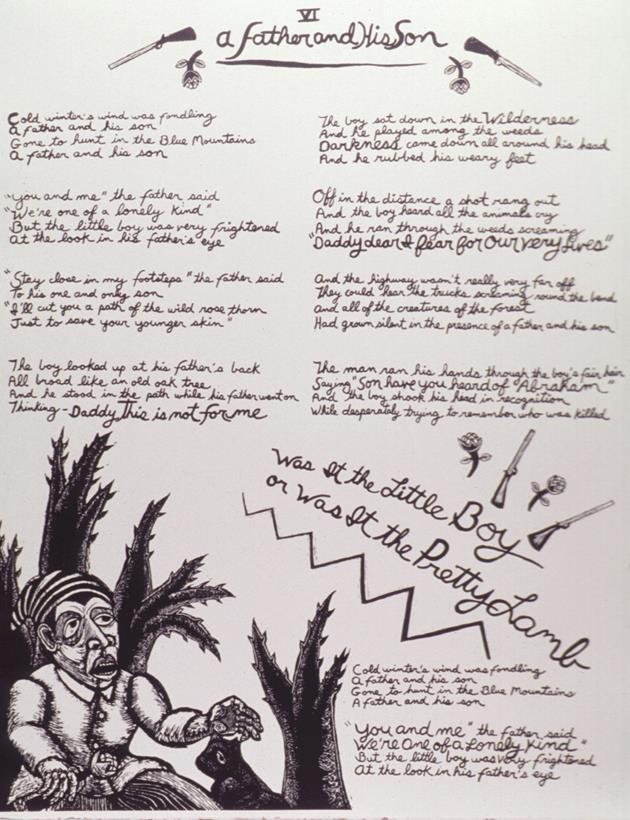 VI
a Father and His Son
Cold winter's wind was fondling
A father and his son
Gone to hunt in the Blue Mountains
A father and his son
"You and me" the father said
"We're one of a lonely kind"
But the little boy was very frightened
At the look in his father's eye
"Stay close in my footsteps" the father said
To his one and only son
"I'll cut you a path of the wild rose thorn
Just to save your younger skin"
The boy looked up at his father's back
All broad like an old oak tree
And he stood in the path while his father went on
Thinking - Daddy, This is not for me
The boy sat down in the Wilderness
And he played among the weeds
Darkness came down all around his head
And he rubbed his weary feet
Off in the distance a shot rang out
And the boy heard all the animals cry
And he ran through the weeds screaming
"Daddy dear I fear for our very lives"
And the highway wasn't really very far off
They could hear the trucks screaming 'round the bend
And all of the creatures of the forest
Had grown silent in the presence of a father and his son
The man ran his hands through the boy's fair hair
Saying "Son have you heard of Abraham"
And the boy shook his head in recognition
While desperately trying to remember who was killed
Was It the Little Boy
or Was It the Pretty Lamb
Cold winter's wind was fondling
A father and his son
Gone to hunt in the Blue Mountains
A father and his son
"You and me" the father said
We're One of a Lonely Kind"
But the little boy was very frightened
At the look in his father's eye